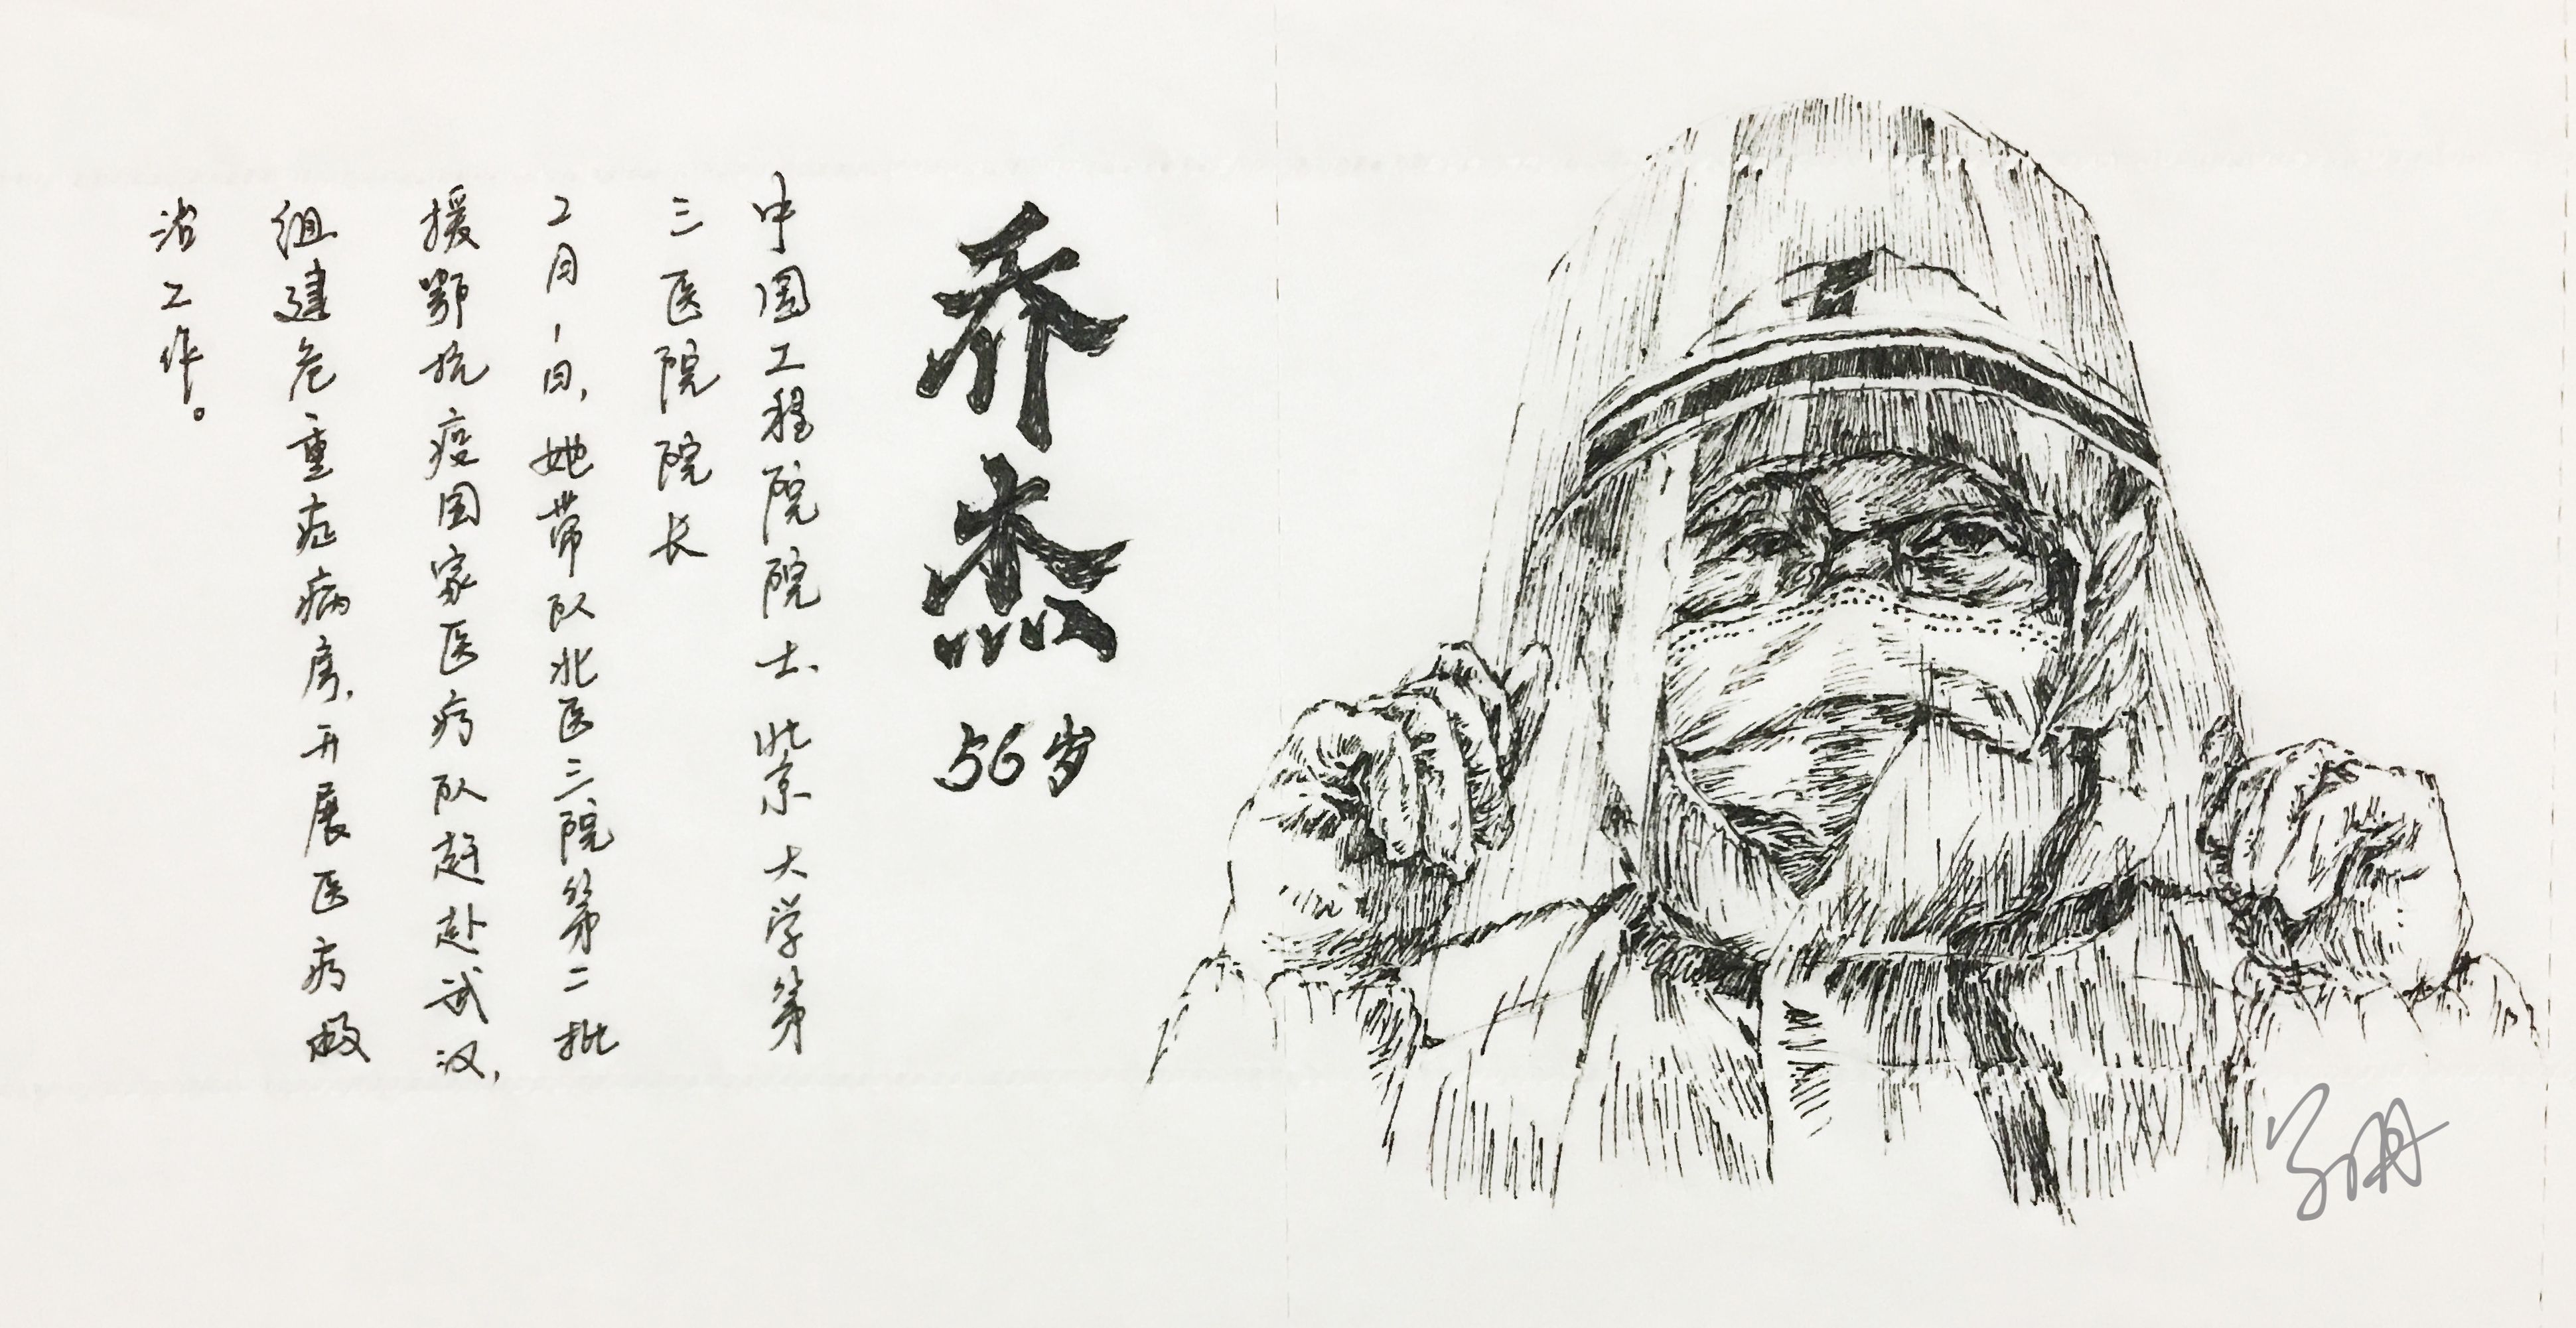 乔杰 56岁
中国工程院院士、北京大学第
三医院院长
2月1日，她带队北医三院第二批
援鄂抗疫国家医疗队赶赴武汉，
组建危重症病房，开展医疗救
治工作。